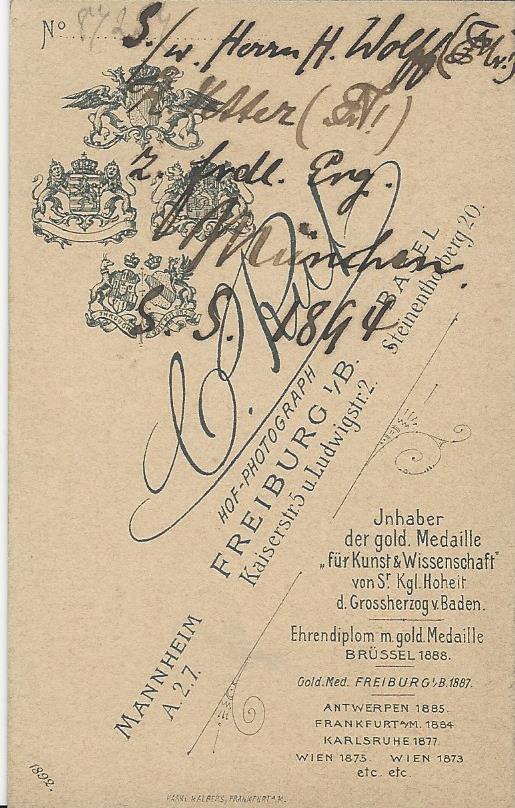 No 87257
S./w. Herrn H. Wolff
z. frdl. Erg.
München.
S. S. 1894
C. Ruf
HOF-PHOTOGRAPH
FREIBURG i/B.
Kaiserstr. 5 u. Ludwigstr. 2.
BASEL
Steinenthorberg 20.
MANNHEIM
A. 2. 7.
Jnhaber
der gold. Medaille
„für Kunst & Wissenschaft"
von Sr. Kgl. Hoheit
d. Grossherzog v. Baden.
Ehrendiplom m. gold. Medaille
BRÜSSEL 1888.
Gold. Med. FREIBURG i/B. 1887.
ANTWERPEN 1885.
FRANKFURT a/M. 1884
KARLSRUHE 1877.
WIEN 1875. WIEN 1873
etc. etc.
1892.
FRANKFURT A. M.